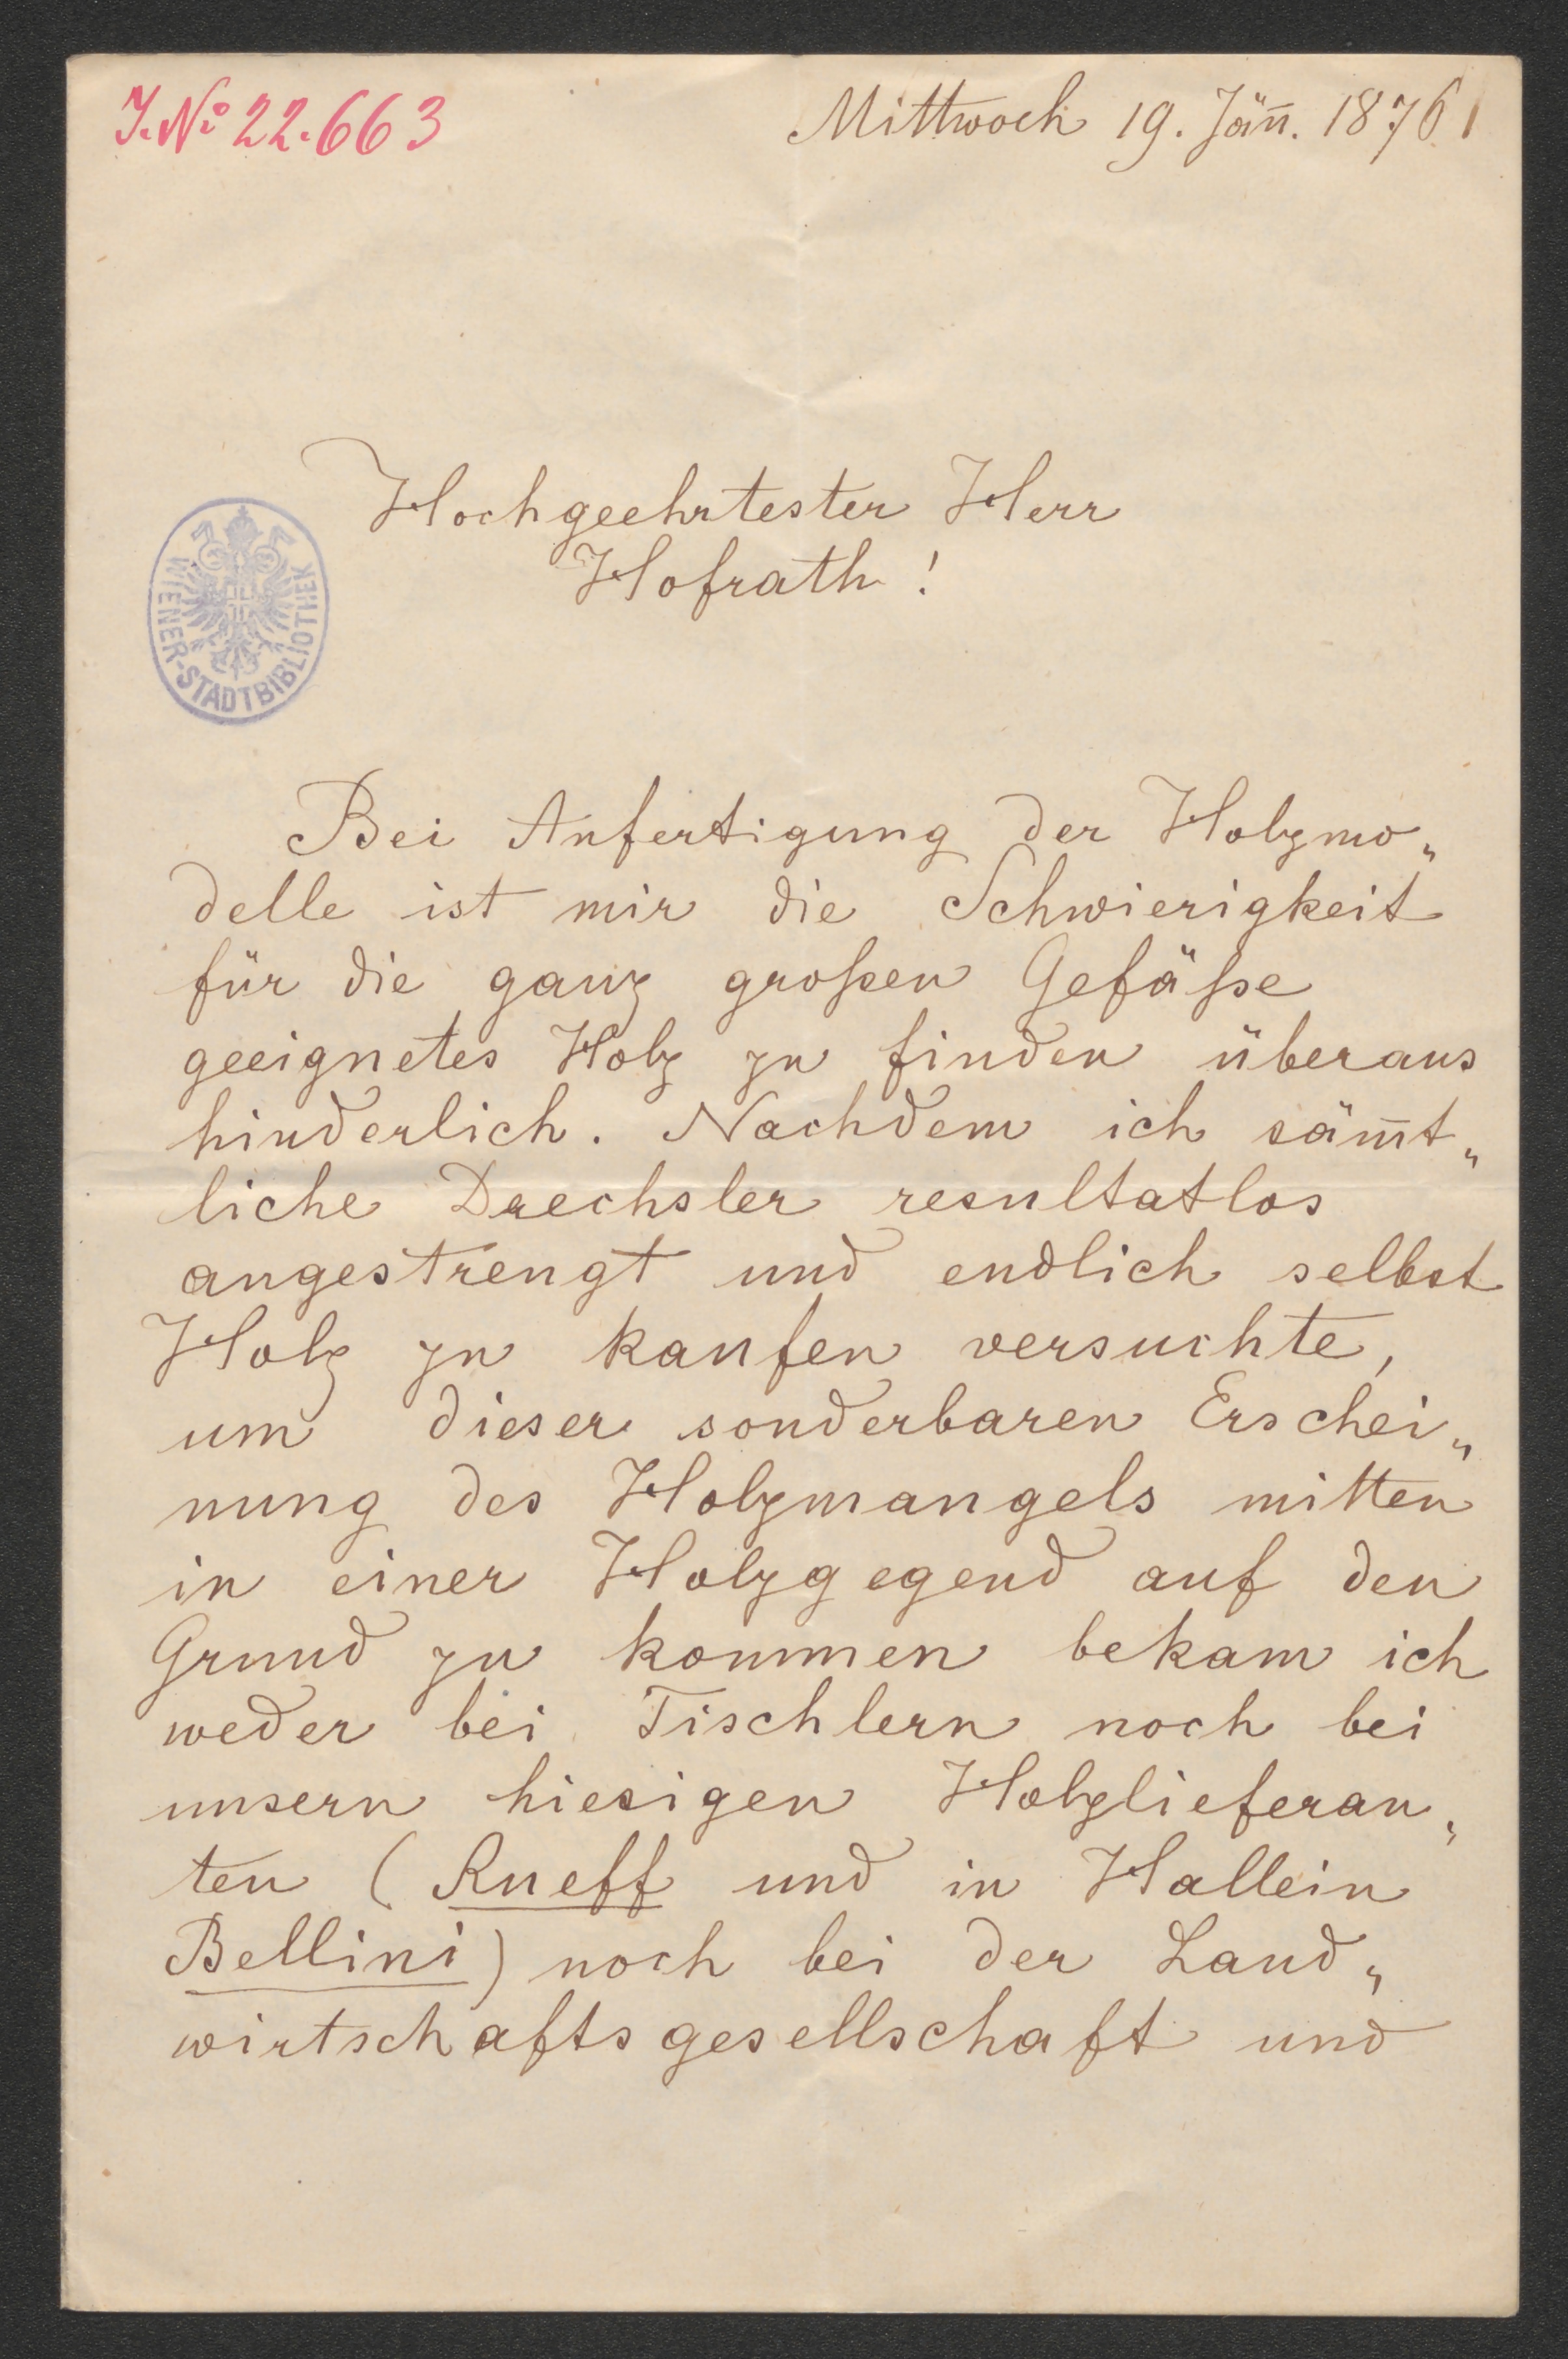 I. N° 22.663
Mittwoch 19. Jän̅. 1876
Hochgeehrtester Herr
Hofrath!
WIENER-STADTBIBLIOTHEK
Bei Anfertigung der Holzmo„
delle ist mir die Schwierigkeit
für die ganz großen Gefäße
geeignetes Holz zu finden überaus
hinderlich. Nachdem ich säm̅t„
liche Drechsler resultatlos
angestrengt und endlich selbst
Holz zu kaufen versuchte,
um dieser sonderbaren Erschei„
nung des Holzmangels mitten
in einer Holzgegend auf den
Grund zu kommen bekam ich
weder bei Tischlern noch bei
unsern hiesigen Holzlieferan„
ten (Rueff und in Hallein
Bellini) noch bei der Land„
wirtschaftsgesellschaft und